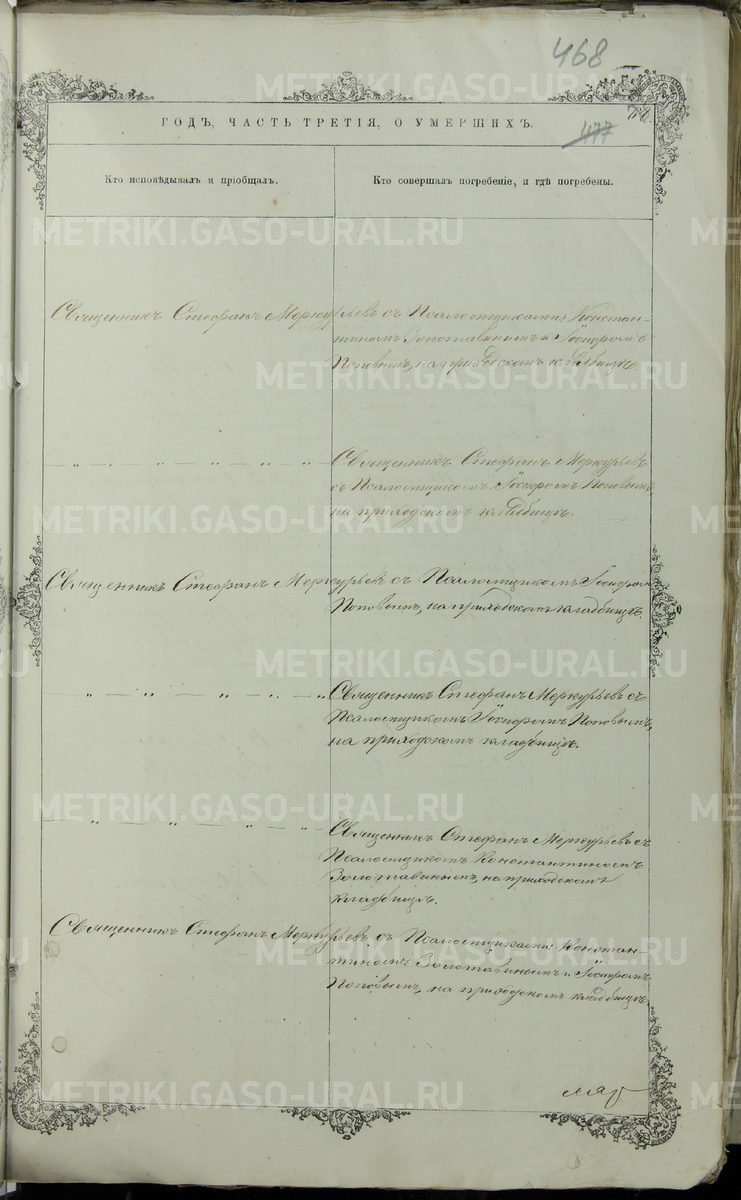 468
ГОДЪ, ЧАСТЬ ТРЕТІЯ, О УМЕРШИХЪ.
477
Кто исповѣдывалъ и пріобщалъ.
Кто совершалъ погребеніе, и гдѣ погребены.
Священникъ Стефанъ Меркурьевъ съ Псаломщиками: Констан-
тиномъ Золотавинымъ и Іосифомъ
Поповымъ, на приходскомъ кладбищѣ.
— „ — „ — „ — „ — „
Священникъ Стефанъ Меркурьевъ
съ Псаломщикомъ Іосифомъ Поповымъ,
на приходскомъ кладбищѣ.
Священникъ Стефанъ Меркурьевъ съ Псаломщикомъ Іосифомъ
Поповымъ, на приходскомъ кладбищѣ.
„ — „ — „ — „ — „
Священникъ Стефанъ Меркурьевъ съ
Псаломщикомъ Іосифомъ Поповымъ,
на приходскомъ кладбищѣ.
„ — „ — „ — „ —
Священникъ Стефанъ Меркурьевъ съ
Псаломщикомъ Константиномъ
Золотавинымъ, на приходскомъ
кладбищѣ.
Священникъ Стефанъ Меркурьевъ съ Псаломщиками: Констан-
тиномъ Золотавинымъ и Іосифомъ
Поповымъ, на приходскомъ кладбищѣ.
METRIKI.GASO-URAL.RU